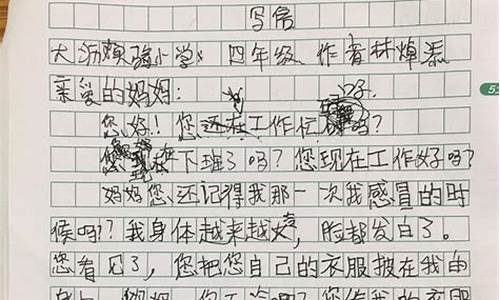 写信
大沥实验小学 四年级 作者林焯
亲爱的妈妈:
您好!您还在工作忙吗?
您现在下班了吗?您现在工作好吗?
妈妈您还记得我那一次我感冒的时
候吗?我身体越来越，脸都发白了。
您看见了，您把您自己的衣服披在我的
身上，妈妈，您不冷吗?您给我的衣服